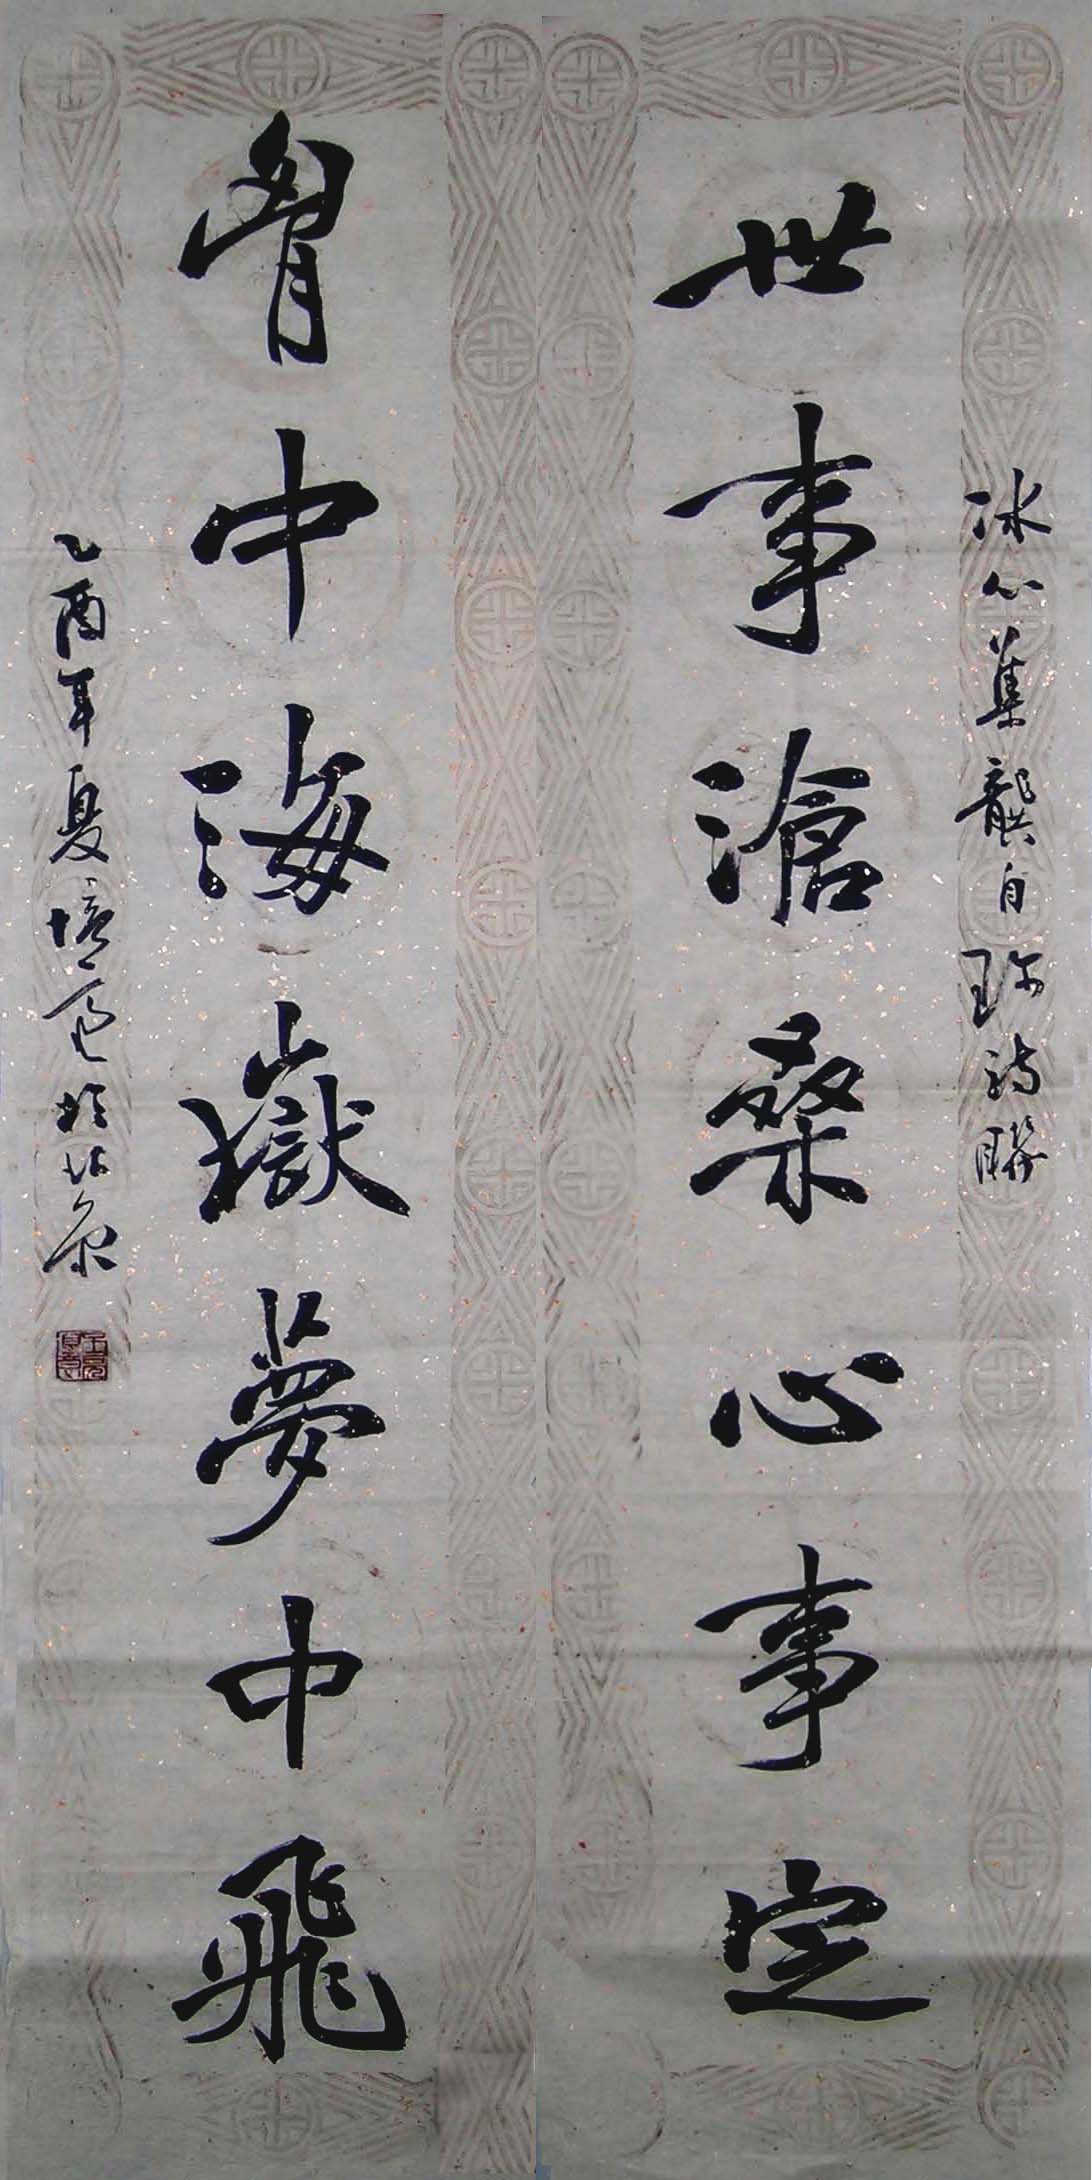 冰心集龔自珍詩聯
世事滄桑心事定
胷中海嶽夢中飛
乙酉年夏培